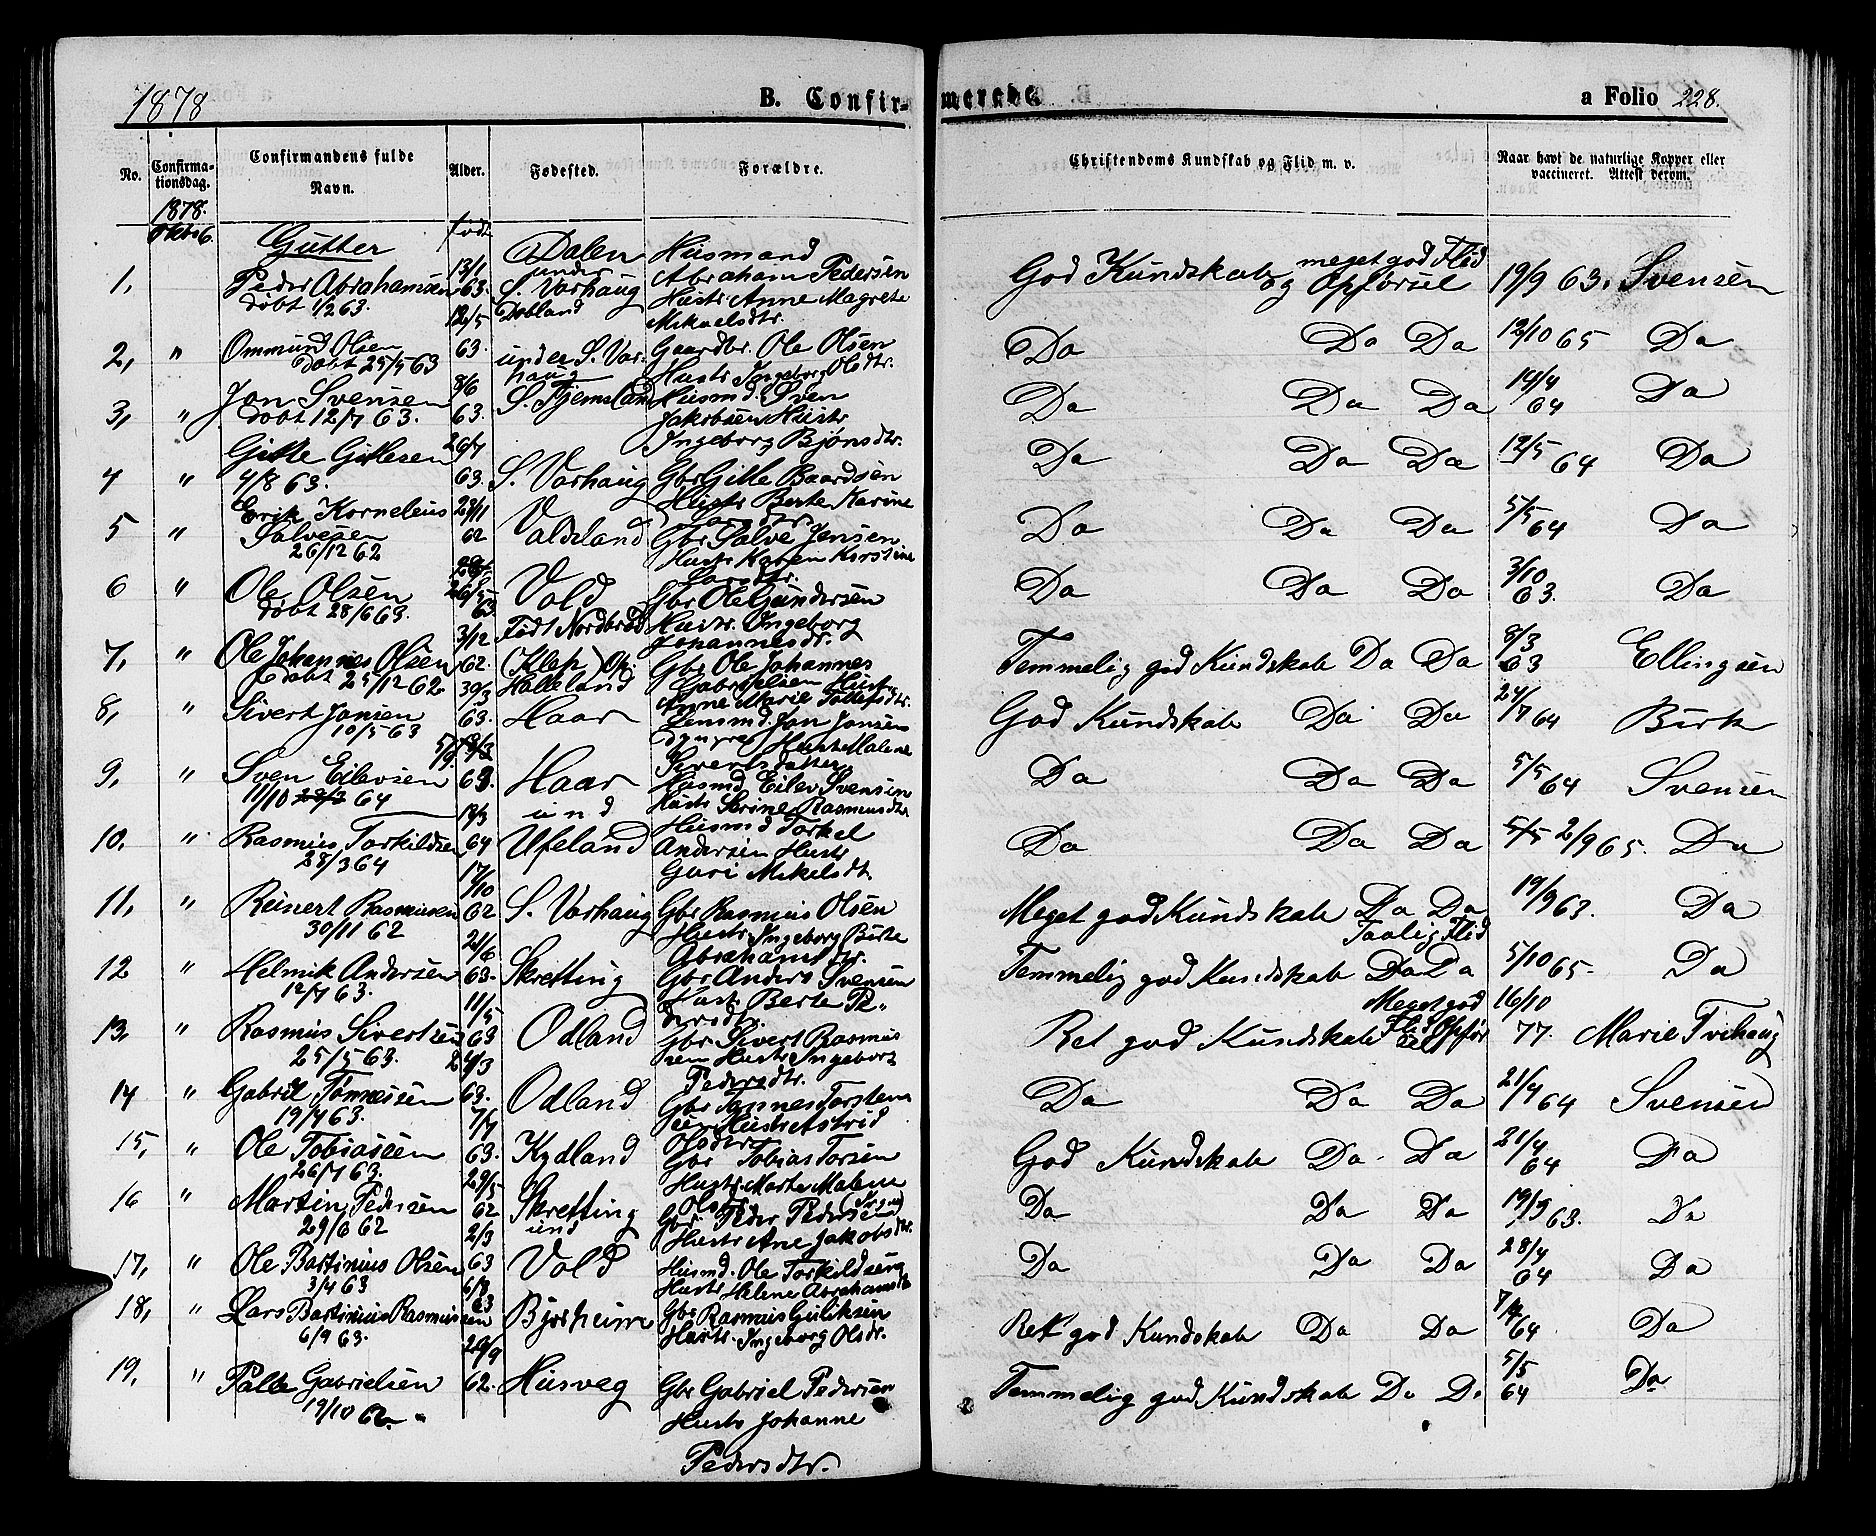 1878
B. Confir-
merede
a Folio 228.
No.
Confirma-
tionsdag.
Confirmandens fulde
Navn.
Alder.
Fødested.
Forældre.
Christendoms Kundskab og Flid m. v.
Naar havt de naturlige Kopper eller
vaccineret. Attest derom.
1878.
Oktb 6.
Gutter
født
1, Peder Abrahamsen 13/1 63. Dalen under S. Varhaug Husmand Abraham Pedersen
døbt 1/2 63. Hustr Anne Magrete Mikaelsdtr.
God Kundskab og meget god Flid Opførsel 19/9 63. Svensen
2, " Ommund Olsen 12/5 63. Dobland under S. Varhaug Gaardbr. Ole Olsen
døbt 25/5 63 Hustr Ingeborg Olsdtr.
Do Do Do 12/10 65 Do
3, " Jon Svensen 8/6 63. S. Tjemsland Husmd. Sven
døbt 12/7 63. Jakobsen Hustr Ingeborg Bjønsdtr.
Do Do Do 14/4 64 Do
4 " Gitle Gitlesen 26/7 63. S. Varhaug Gbr Gitle Baardsen
4/8 63. Hustr Berte Karine
Do Do Do 12/5 64 Do
5 " Erik Kornelius Salvesen 62 Valdeland Gbr Salve Jensen
26/12 62 Hustr Karen Kirstine Larsdtr.
Do Do Do 5/5 64 Do
6 " Ole Olsen 26/5 63 Vold Gbr Ole Gundersen
døbt 28/6 63. Hustr. Ingeborg Johannesdtr.
Do Do Do 3/10 63. Do
7, " Ole Johannes Olsen 3/12 62. Født Nordbrød (Klep) Op: Halleland Gbr Ole Johannes
døbt 25/12 62. Gabrielsen Hustr Anne Marie
Temmelig god Kundskab Do Do 8/3 63 Ellingsen
8, " Sivert Jansen 30/3 63. Haar Lensmd. Jan Jansen
10/5 63 Hustr Malene Sivertsdatter
God Kundskab Do Do 24/7 64 Birk
9, " Sven Eilevsen 63. Haar Husmd Eilev Svensen
11/10 64 Hustr Serine Rasmusdtr.
Do Do Do 5/5 64 Svensen
10. " Rasmus Torkildsen 64 und Ueland Husmd Torkel
28/3 64 Andersen Hustr Guri Mikelsdt.
Do Do Do 5/5 2/9 65. Do
11, " Reinert Rasmusen 17/10 62 S. Varhaug Gbr Rasmus Olsen
30/11 62 Hustr. Ingeborg Birte Abrahamsdtr.
Meget god Kundskab Do Do 19/9 63. Do
12 " Helmik Andersen 21/6 63. Skretting Gbr Anders Svensen
12/7 63. Hust. Berte Pe-
dersdtr.
Temmelig god Kundskab Taalig Flid Do Do 5/10 65. Do
13, " Rasmus Sivertsen 11/5 63 Odland Gbr Sivert Rasmus
25/5 63. sen Hustr Ingeborg Pedersdtr.
Ret god Kundskab Meget god Flid Opførsel 16/10 77. Marie Tvihaug
14 " Gabriel Tønnesen 24/3 63. Odland Gbr Tønnes Torsten
19/4 63. sen Hustr Astrid Olsdtr
Do Do Do 21/4 64 Svensen
15, " Ole Tobiassen 7/7 63. Kydland Gbr Tobias Torsen
26/7 63. Hustr. Marte Malene Olsdtr
God Kundskab Do Do 21/4 64 Do
16 " Martin Pedersen 29/5 62 Skretting Gbr Peder Pedersen
29/6 62 Hustr Ane Jakobsdtr.
Do Do Do 19/9 63. Do
17, " Ole Bartinius Olsen 2/3 63 und Vold Husmd. Ole Torkildsen
3/4 63 Hustr Helene Abrahamsdtr
Do Do Do 28/4 64 Do
18, " Lars Bertinius Rasmussen 6/8 63 Bjorheim Gbr Rasmus Guliksen
6/9 63. Hustr. Ingeborg Olsdtr.
Ret god Kundskab Do Do 64 Do
19, " Palle Gabrielsen 20/9 62. Husveg Gbr Gabriel Pedersen
19/10 62. Hustr Johanne
Pedersdtr.
Temmelig god Kundskab Do Do 5/5 64 Do